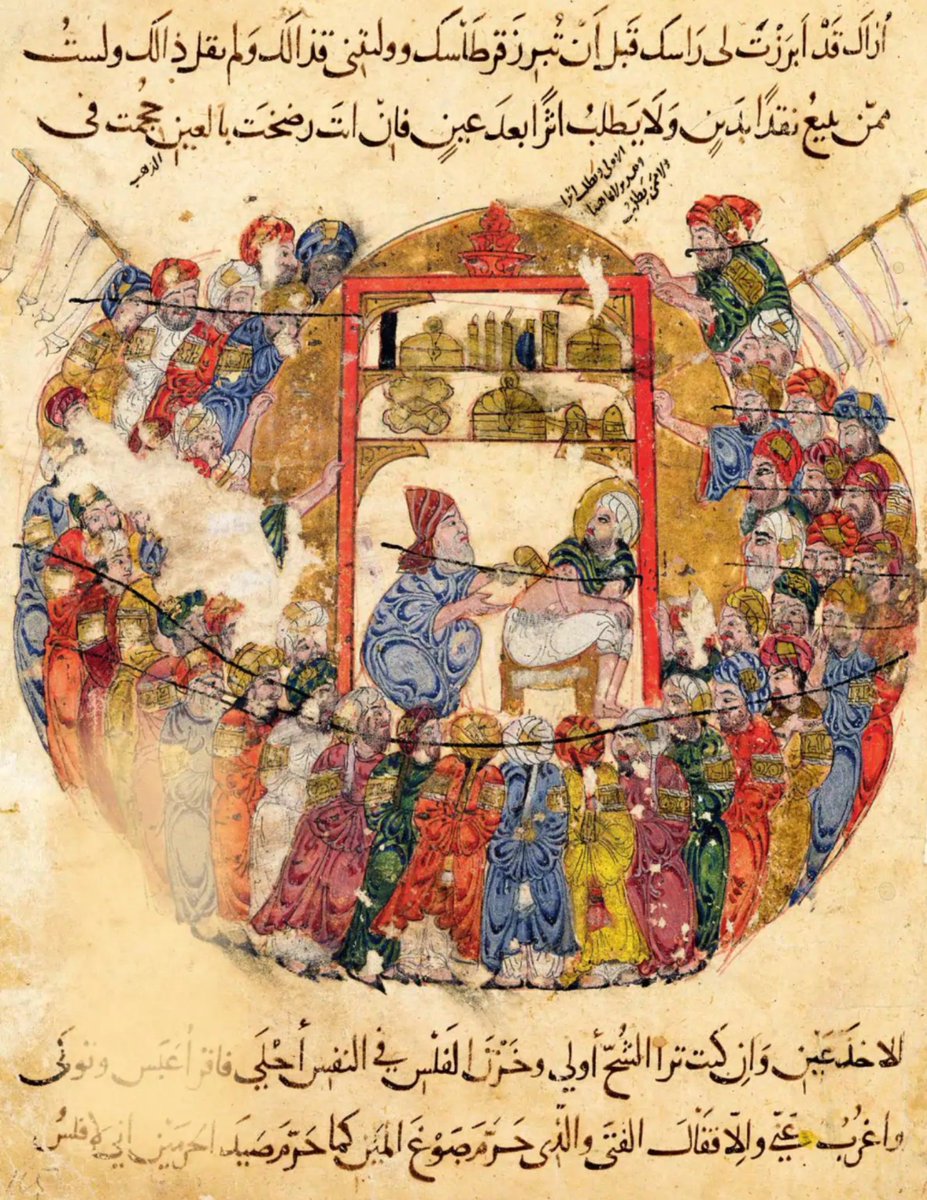 أراك قد أبرزت لى راسك قبل أن تبرز قرطاسك ووليتنى قذالك ولم تقل ذالك ولست
ممن يبيع نقدًا بدين ولا يطلب اثرًا بعد عينٍ فان انت رضخت بالعين حجمت فى
الذهب
الاخدعين وان كنت ترا الشح أولي وخزن الفلس في النفس أحلي فاقرا عبس وتولى
واغرب عني والا فقال الفتى والذى حرم صوغ المين كما حرم صيد الحرمين اني لافلس